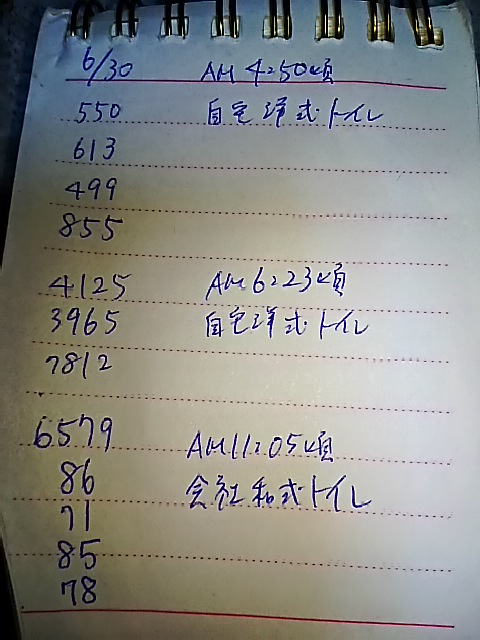 6/30 AM 4:50頃
550 自宅洋式トイレ
613
499
855
4125 AM 6:23頃
3965 自宅洋式トイレ
7812
6579 AM 11:05頃
86 会社和式トイレ
71
85
78